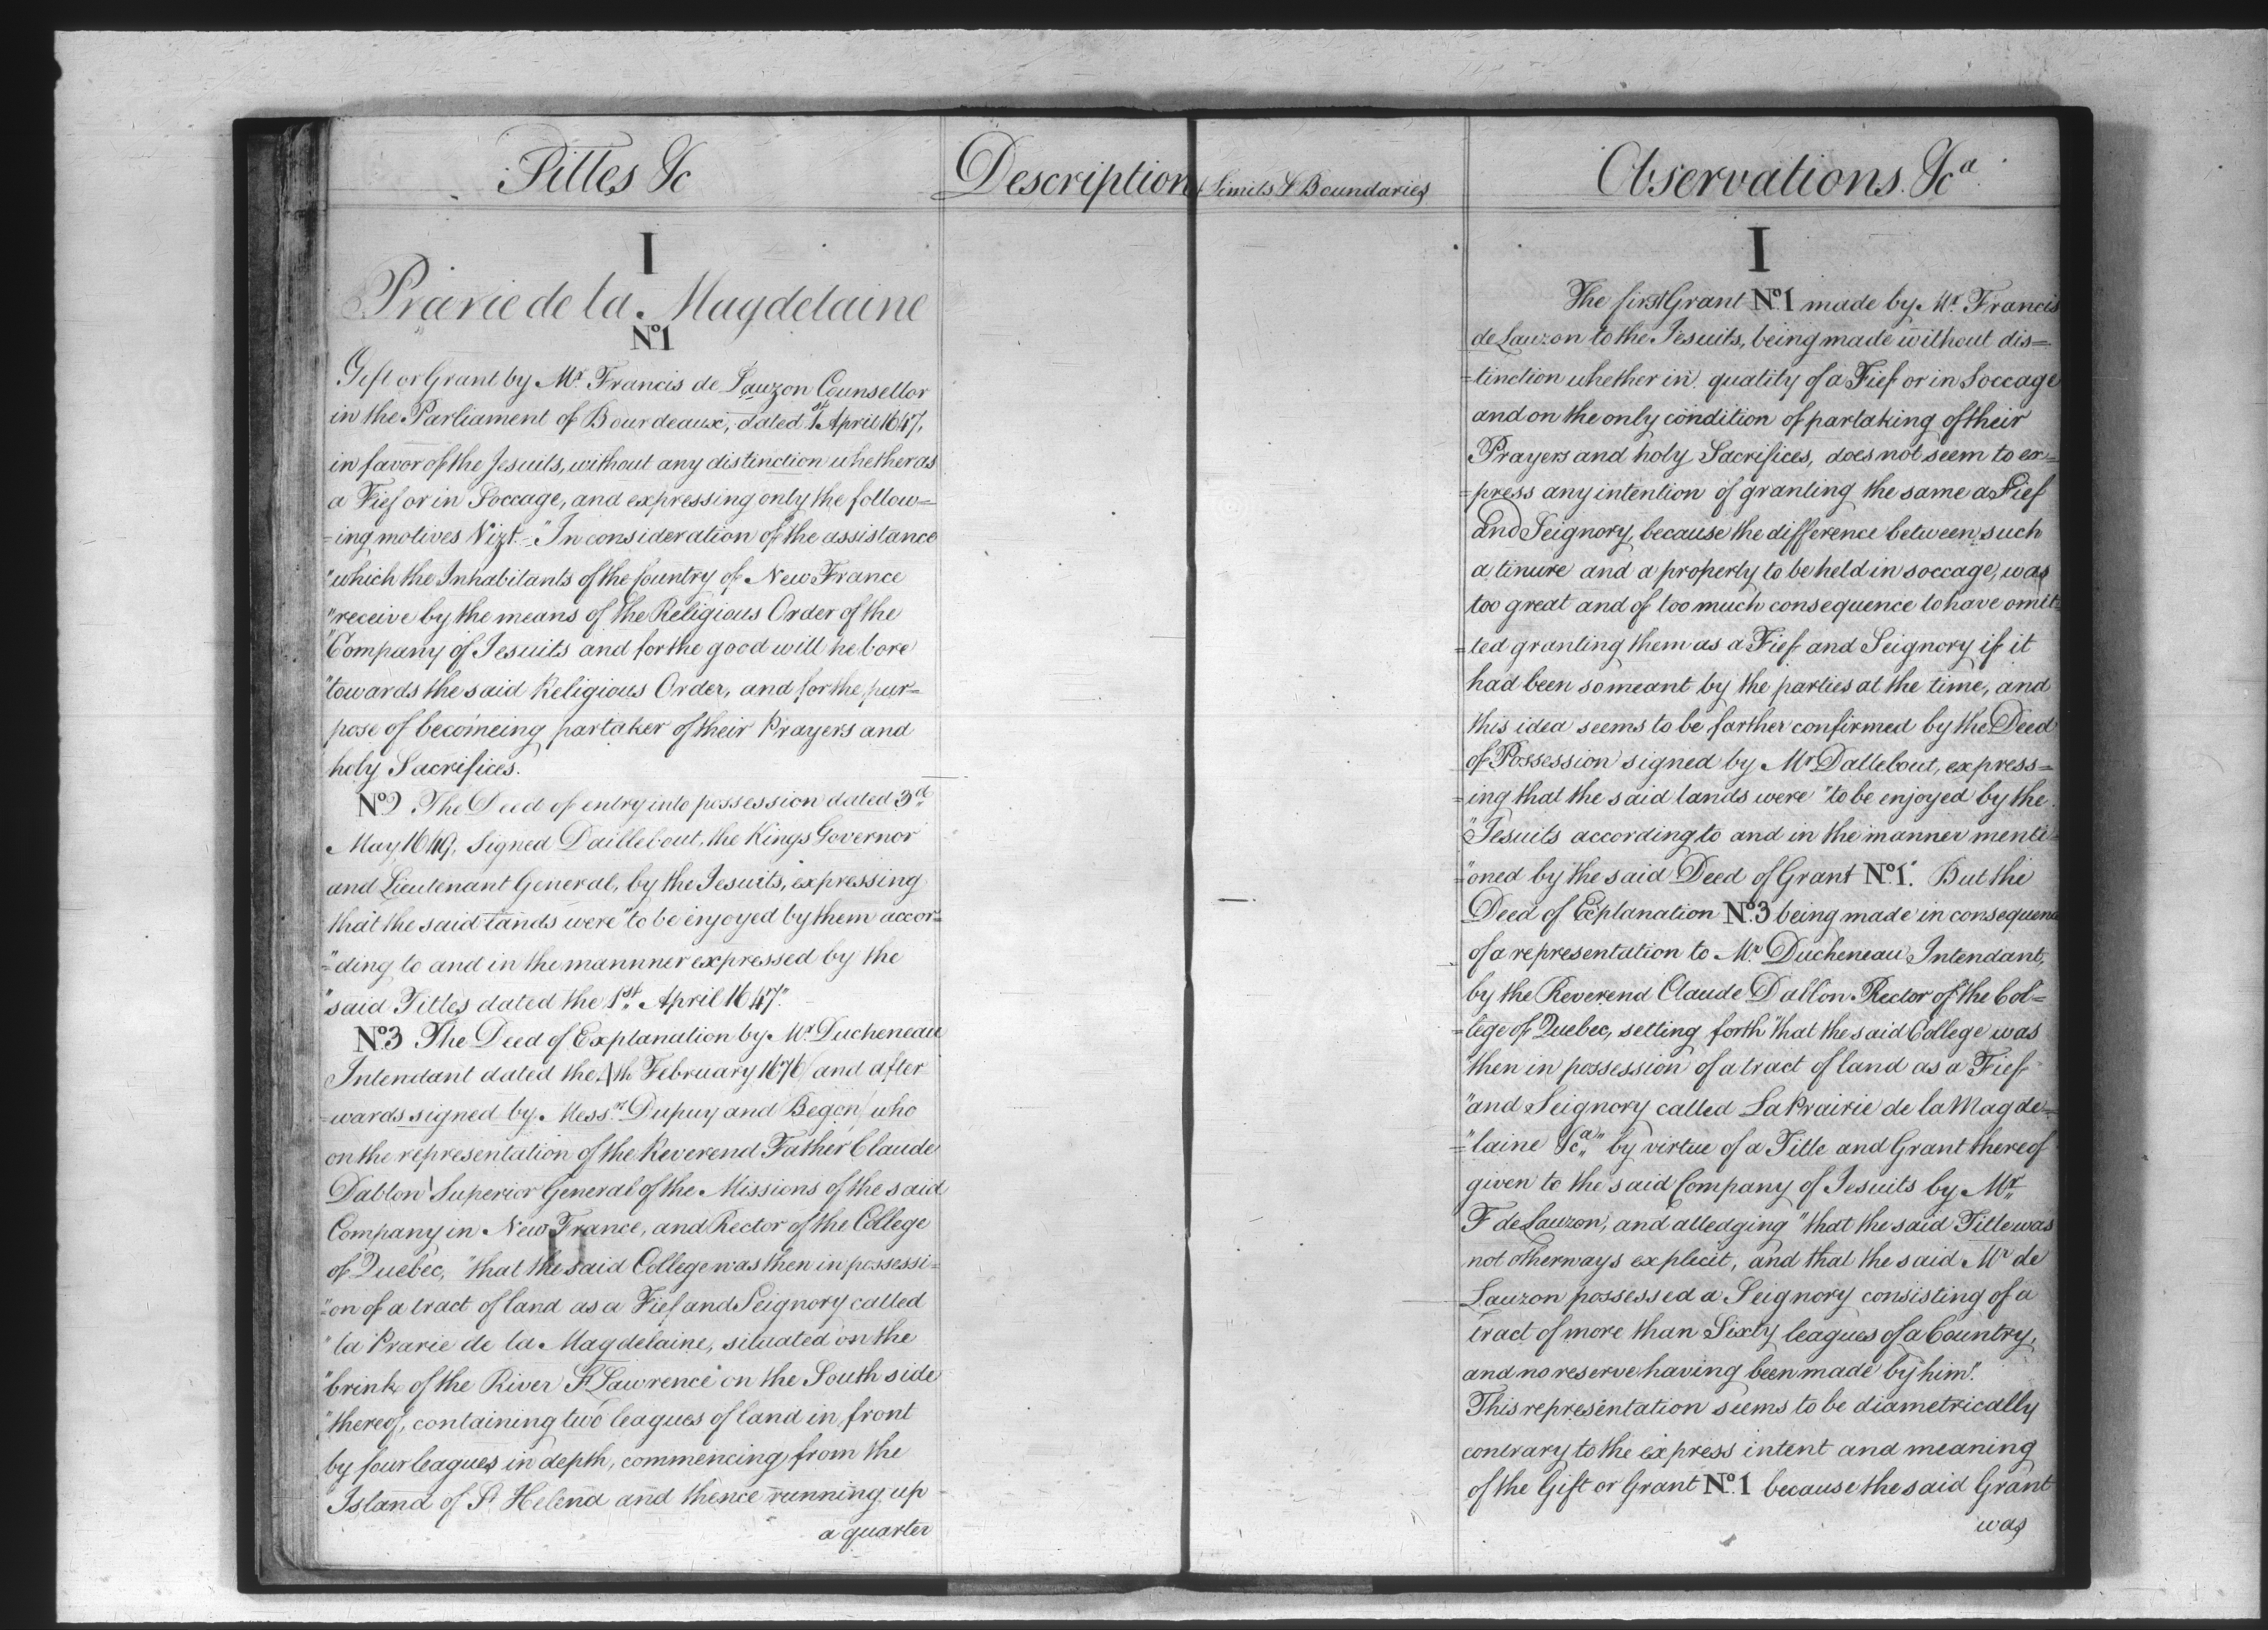 Titles &c
I
Prarie de la Magdelaine
No 1
Gift or Grant by Mr. Francis de Lauzon Counsellor
in the Parliament of Bourdeaux, dated 1st April 1647,
in favor of the Jesuits, without any distinction whether as
a Fief or in Soccage, and expressing only the follow=
=ing motives Vizt. "In consideration of the assistance
"which the Inhabitants of the Country of New France
"receive by the means of the Religious Order of the
"Company of Jesuits and for the good will he bore
"towards the said Religious Order, and for the pur=
pose of becomeing partaker of their Prayers and
holy Sacrifices.
No 2 The Deed of entry into possession dated 3d
May 1649, signed Daillebout, the Kings Governor
and Lieutenant General, by the Jesuits, expressing
that the said lands were "to be enjoyed by them accor=
="ding to and in the mannner expressed by the
"said Titles dated the 1st April 1647."
No 3 The Deed of Explanation by Mr. Ducheneau
Intendant dated the 4th February 1676 / and after
wards signed by Messrs. Dupuy and Begon / who
on the representation of the Reverend Father Claude
Dablon Superior General of the Missions of the said
Company in New France, and Rector of the College
of Quebec, "that the said College was then in possessi=
"=on of a tract of land as a Fief and Seignory called
"la Prarie de la Magdelaine, situated on the
"brink of the River St Lawrence on the South side
"thereof, containing two leagues of land in front
by four leagues in depth, commencing from the
Island of St Helena and thence running up
a quarter
Description, Limits & Boundaries
Observations. &ca.
I
The first Grant No. 1 made by Mr. Francis
de Lauzon to the Jesuits, being made without dis=
=tinction whether in quality of a Fief or in Soccage
and on the only condition of partaking of their
Prayers and holy Sacrifices, does not seem to ex=
=press any intention of granting the same a Fief
and Seignory, because the difference between such
a tinure and a property to be held in soccage, was
too great and of too much consequence to have omit=
=ted granting them as a Fief and Seignory if it
had been so meant by the parties at the time, and
this idea seems to be farther confirmed by the Deed
of Possession signed by Mr Dallebout, express=
=ing that the said lands were "to be enjoyed by the
"Jesuits according to and in the manner menti=
="oned by the said Deed of Grant No. 1." But the
Deed of Explanation No. 3 being made in consequence
of a representation to Mr. Ducheneau Intendant,
by the Reverend Claude Dablon Rector of the Col=
=lege of Quebec, setting forth "that the said College was
"then in possession of a tract of land as a Fief
"and Seignory called La Prairie de la Magde=
="laine &ca" by virtue of a Title and Grant thereof
given to the said Company of Jesuits by Mr.
F de Lauzon, and alledging "that the said Title was
not otherways explicit, and that the said Mr de
Lauzon possessed a Seignory consisting of a
tract of more than Sixty leagues of a Country,
and no reserve having been made by him".
This representation seems to be diametrically
contrary to the express intent and meaning
of the Gift or Grant No. 1 because the said Grant
was